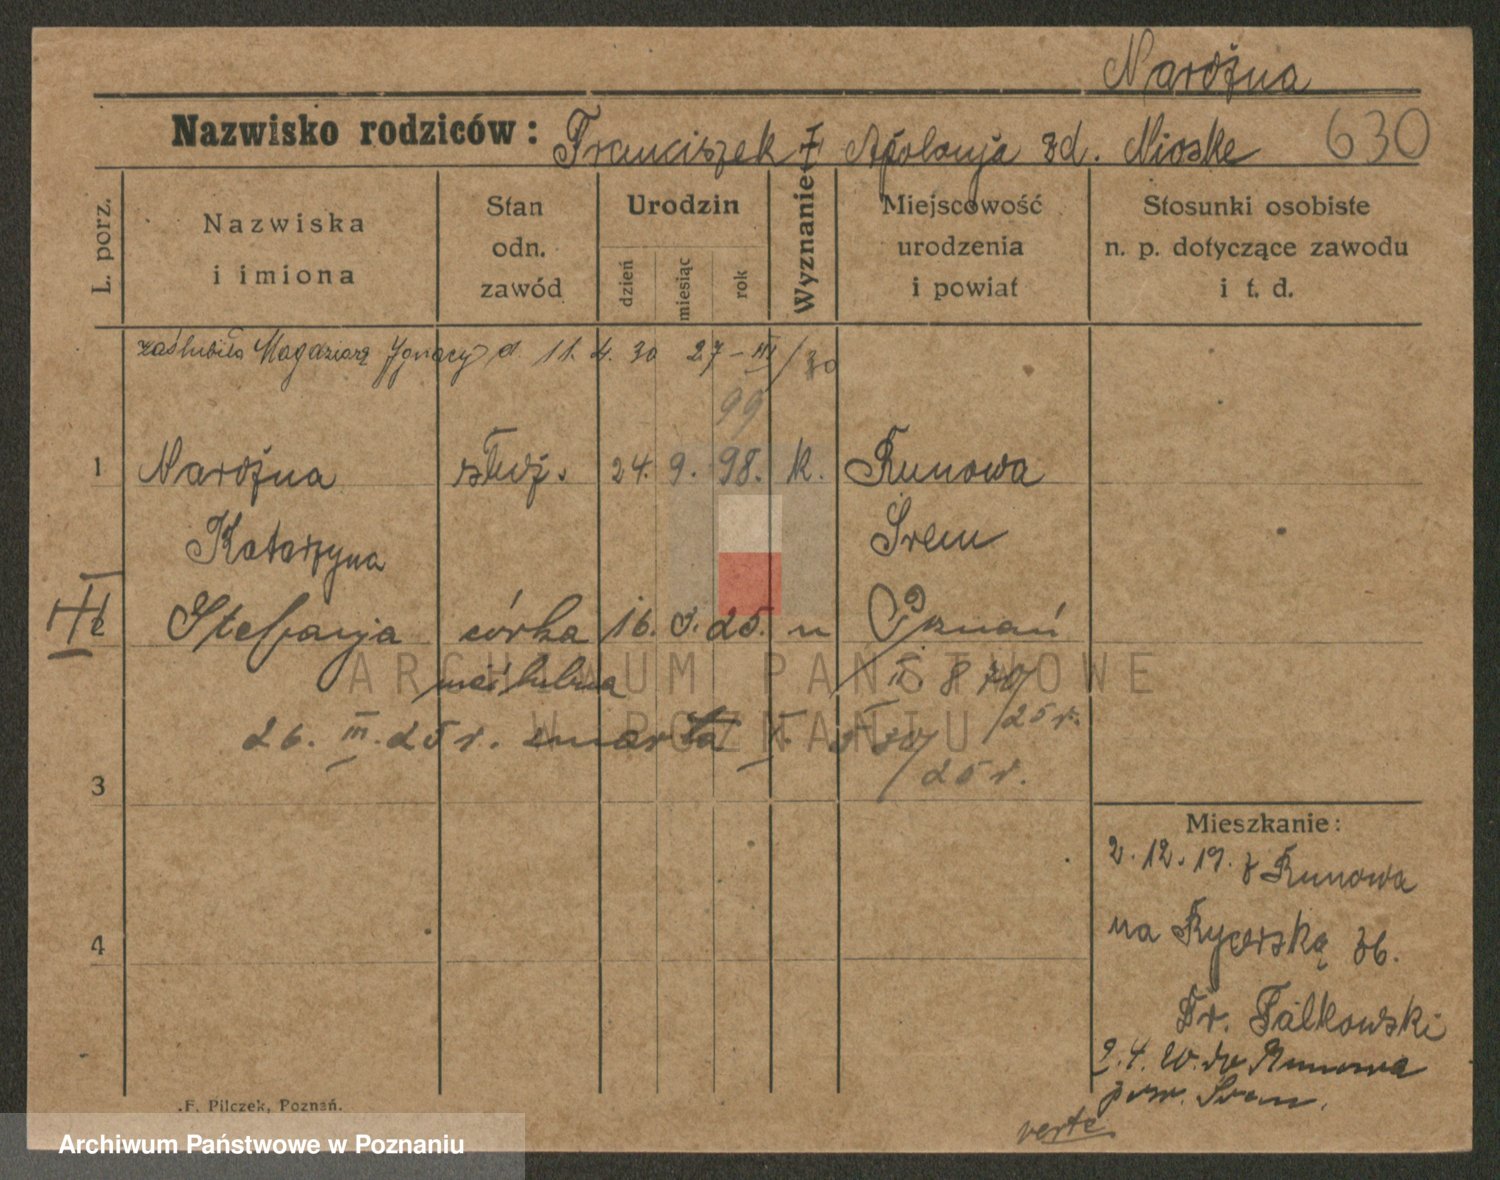 Naróżna
Nazwisko rodziców: Franciszek i Apolonja zd. Nioske 630
L. porz.
Nazwiska i imiona
Stan odn. zawód
Urodzin
dzień miesiąc rok
Wyznanie
Miejscowość urodzenia i powiat
Stosunki osobiste n. p. dotyczące zawodu i t. d.
zaślubiła Magdziarz Ignacy d. 11. 4. 30 27 - III/30
99
1 Naróżna służ. 24. 9. 98. k. Runowa
Katarzyna Śrem
2 Stefanja córka 16. 3. 25. n Poznań
nieślubna II. 8 70/25 r.
26. III. 25 r. zmarła I.
25 r.
3
Mieszkanie:
2. 12. 19. z Runowa
na Rycerską 36.
Dr. Falkowski
2. 4. 20. do Runowa
pow. Śrem.
4
F. Pilczek, Poznań.
verte
ARCHIWUM PAŃSTWOWE
W POZNANIU
Archiwum Państwowe w Poznaniu